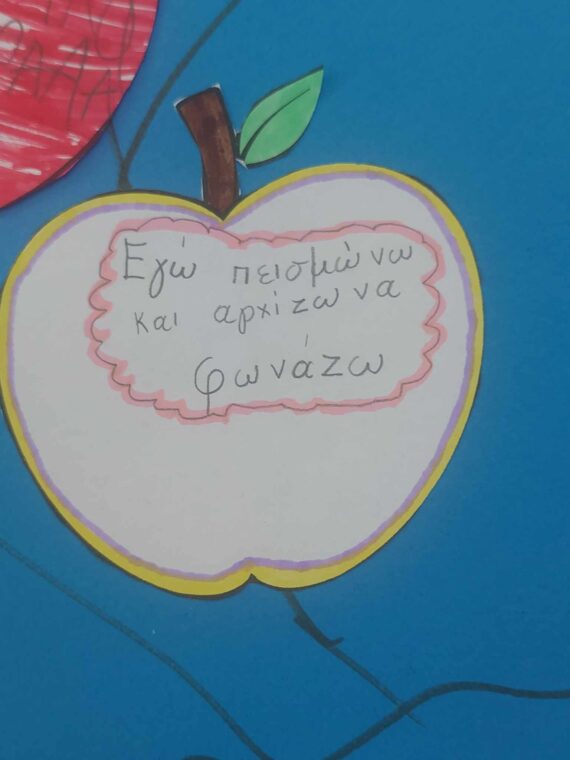 Εγώ πεισμώνω
και αρχίζω να
φωνάζω